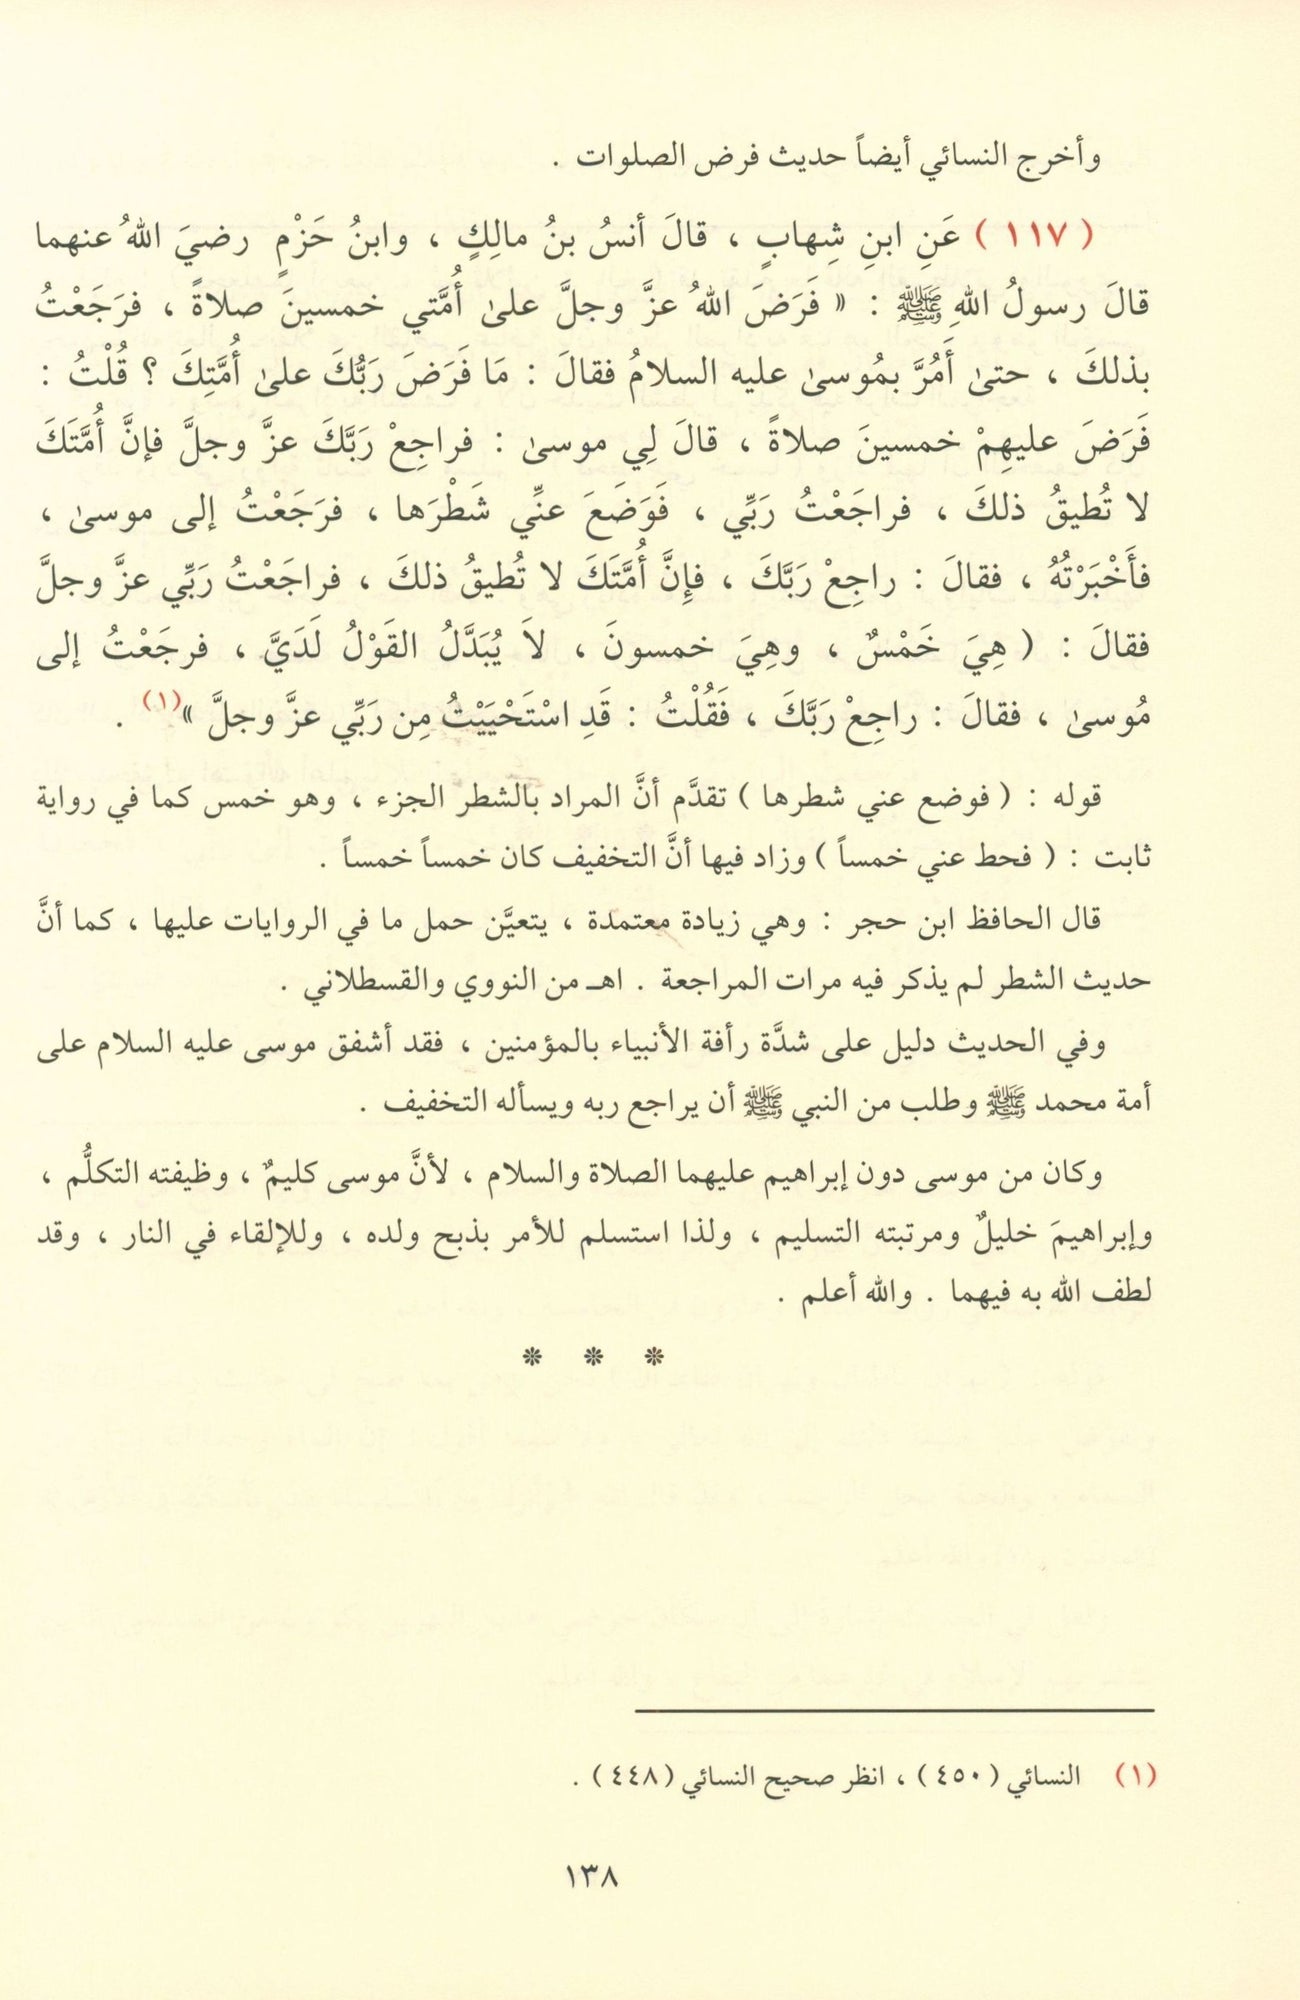 وأخرج النسائي أيضاً حديث فرض الصلوات .
( ١١٧ ) عَنِ ابنِ شِهابٍ ، قالَ أنسُ بنُ مالِكٍ ، وابنُ حَزْمٍ رضيَ اللهُ عنهما
قالَ رسولُ اللهِ ﷺ : « فَرَضَ اللهُ عزَّ وجلَّ علىٰ أُمَّتي خمسينَ صلاةً ، فرَجَعْتُ
بذلكَ ، حتىٰ أَمُرَّ بمُوسىٰ عليه السلامُ فقالَ : مَا فَرَضَ رَبُّكَ علىٰ أُمَّتِكَ ؟ قُلْتُ :
فَرَضَ عليهِمْ خمسينَ صلاةً ، قالَ لِي موسىٰ : فراجِعْ رَبَّكَ عزَّ وجلَّ فإنَّ أُمَّتَكَ
لا تُطيقُ ذلكَ ، فراجَعْتُ رَبِّي ، فَوَضَعَ عنِّي شَطْرَها ، فرَجَعْتُ إلى موسىٰ ،
فأَخْبَرْتُهُ ، فقالَ : راجِعْ رَبَّكَ ، فإِنَّ أُمَّتَكَ لا تُطيقُ ذلكَ ، فراجَعْتُ رَبِّي عزَّ وجلَّ
فقالَ : ( هِيَ خَمْسٌ ، وهِيَ خمسونَ ، لاَ يُبَدَّلُ القَوْلُ لَدَيَّ ، فرجَعْتُ إلى
مُوسىٰ ، فقالَ : راجِعْ رَبَّكَ ، فَقُلْتُ : قَدِ اسْتَحْيَيْتُ مِن رَبِّي عزَّ وجلَّ »(١) .
قوله : ( فوضع عني شطرها ) تقدَّم أنَّ المراد بالشطر الجزء ، وهو خمس كما في رواية
ثابت : ( فحط عني خمساً ) وزاد فيها أنَّ التخفيف كان خمساً خمساً .
قال الحافظ ابن حجر : وهي زيادة معتمدة ، يتعيَّن حمل ما في الروايات عليها ، كما أنَّ
حديث الشطر لم يذكر فيه مرات المراجعة . اهـ من النووي والقسطلاني .
وفي الحديث دليل على شدَّة رأفة الأنبياء بالمؤمنين ، فقد أشفق موسى عليه السلام على
أمة محمد ﷺ وطلب من النبي ﷺ أن يراجع ربه ويسأله التخفيف .
وكان من موسى دون إبراهيم عليهما الصلاة والسلام ، لأنَّ موسى كليمٌ ، وظيفته التكلُّم ،
وإبراهيمَ خليلٌ ومرتبته التسليم ، ولذا استسلم للأمر بذبح ولده ، وللإلقاء في النار ، وقد
لطف الله به فيهما . والله أعلم .
❊ ❊ ❊
(١) النسائي ( ٤٥٠ ) ، انظر صحيح النسائي ( ٤٤٨ ) .
١٣٨